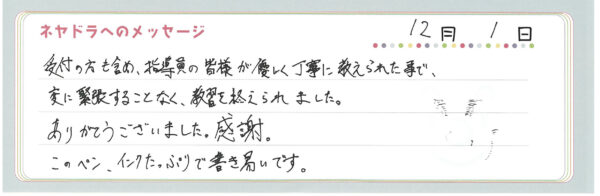 ネヤドラへのメッセージ
12月 1日
受付の方も含め、指導員の皆様が優しく丁寧に教えられた事で、
変に緊張することなく、教習を終えられました。
ありがとうございました。感謝。
このペン、インクたっぷりで書き易いです。